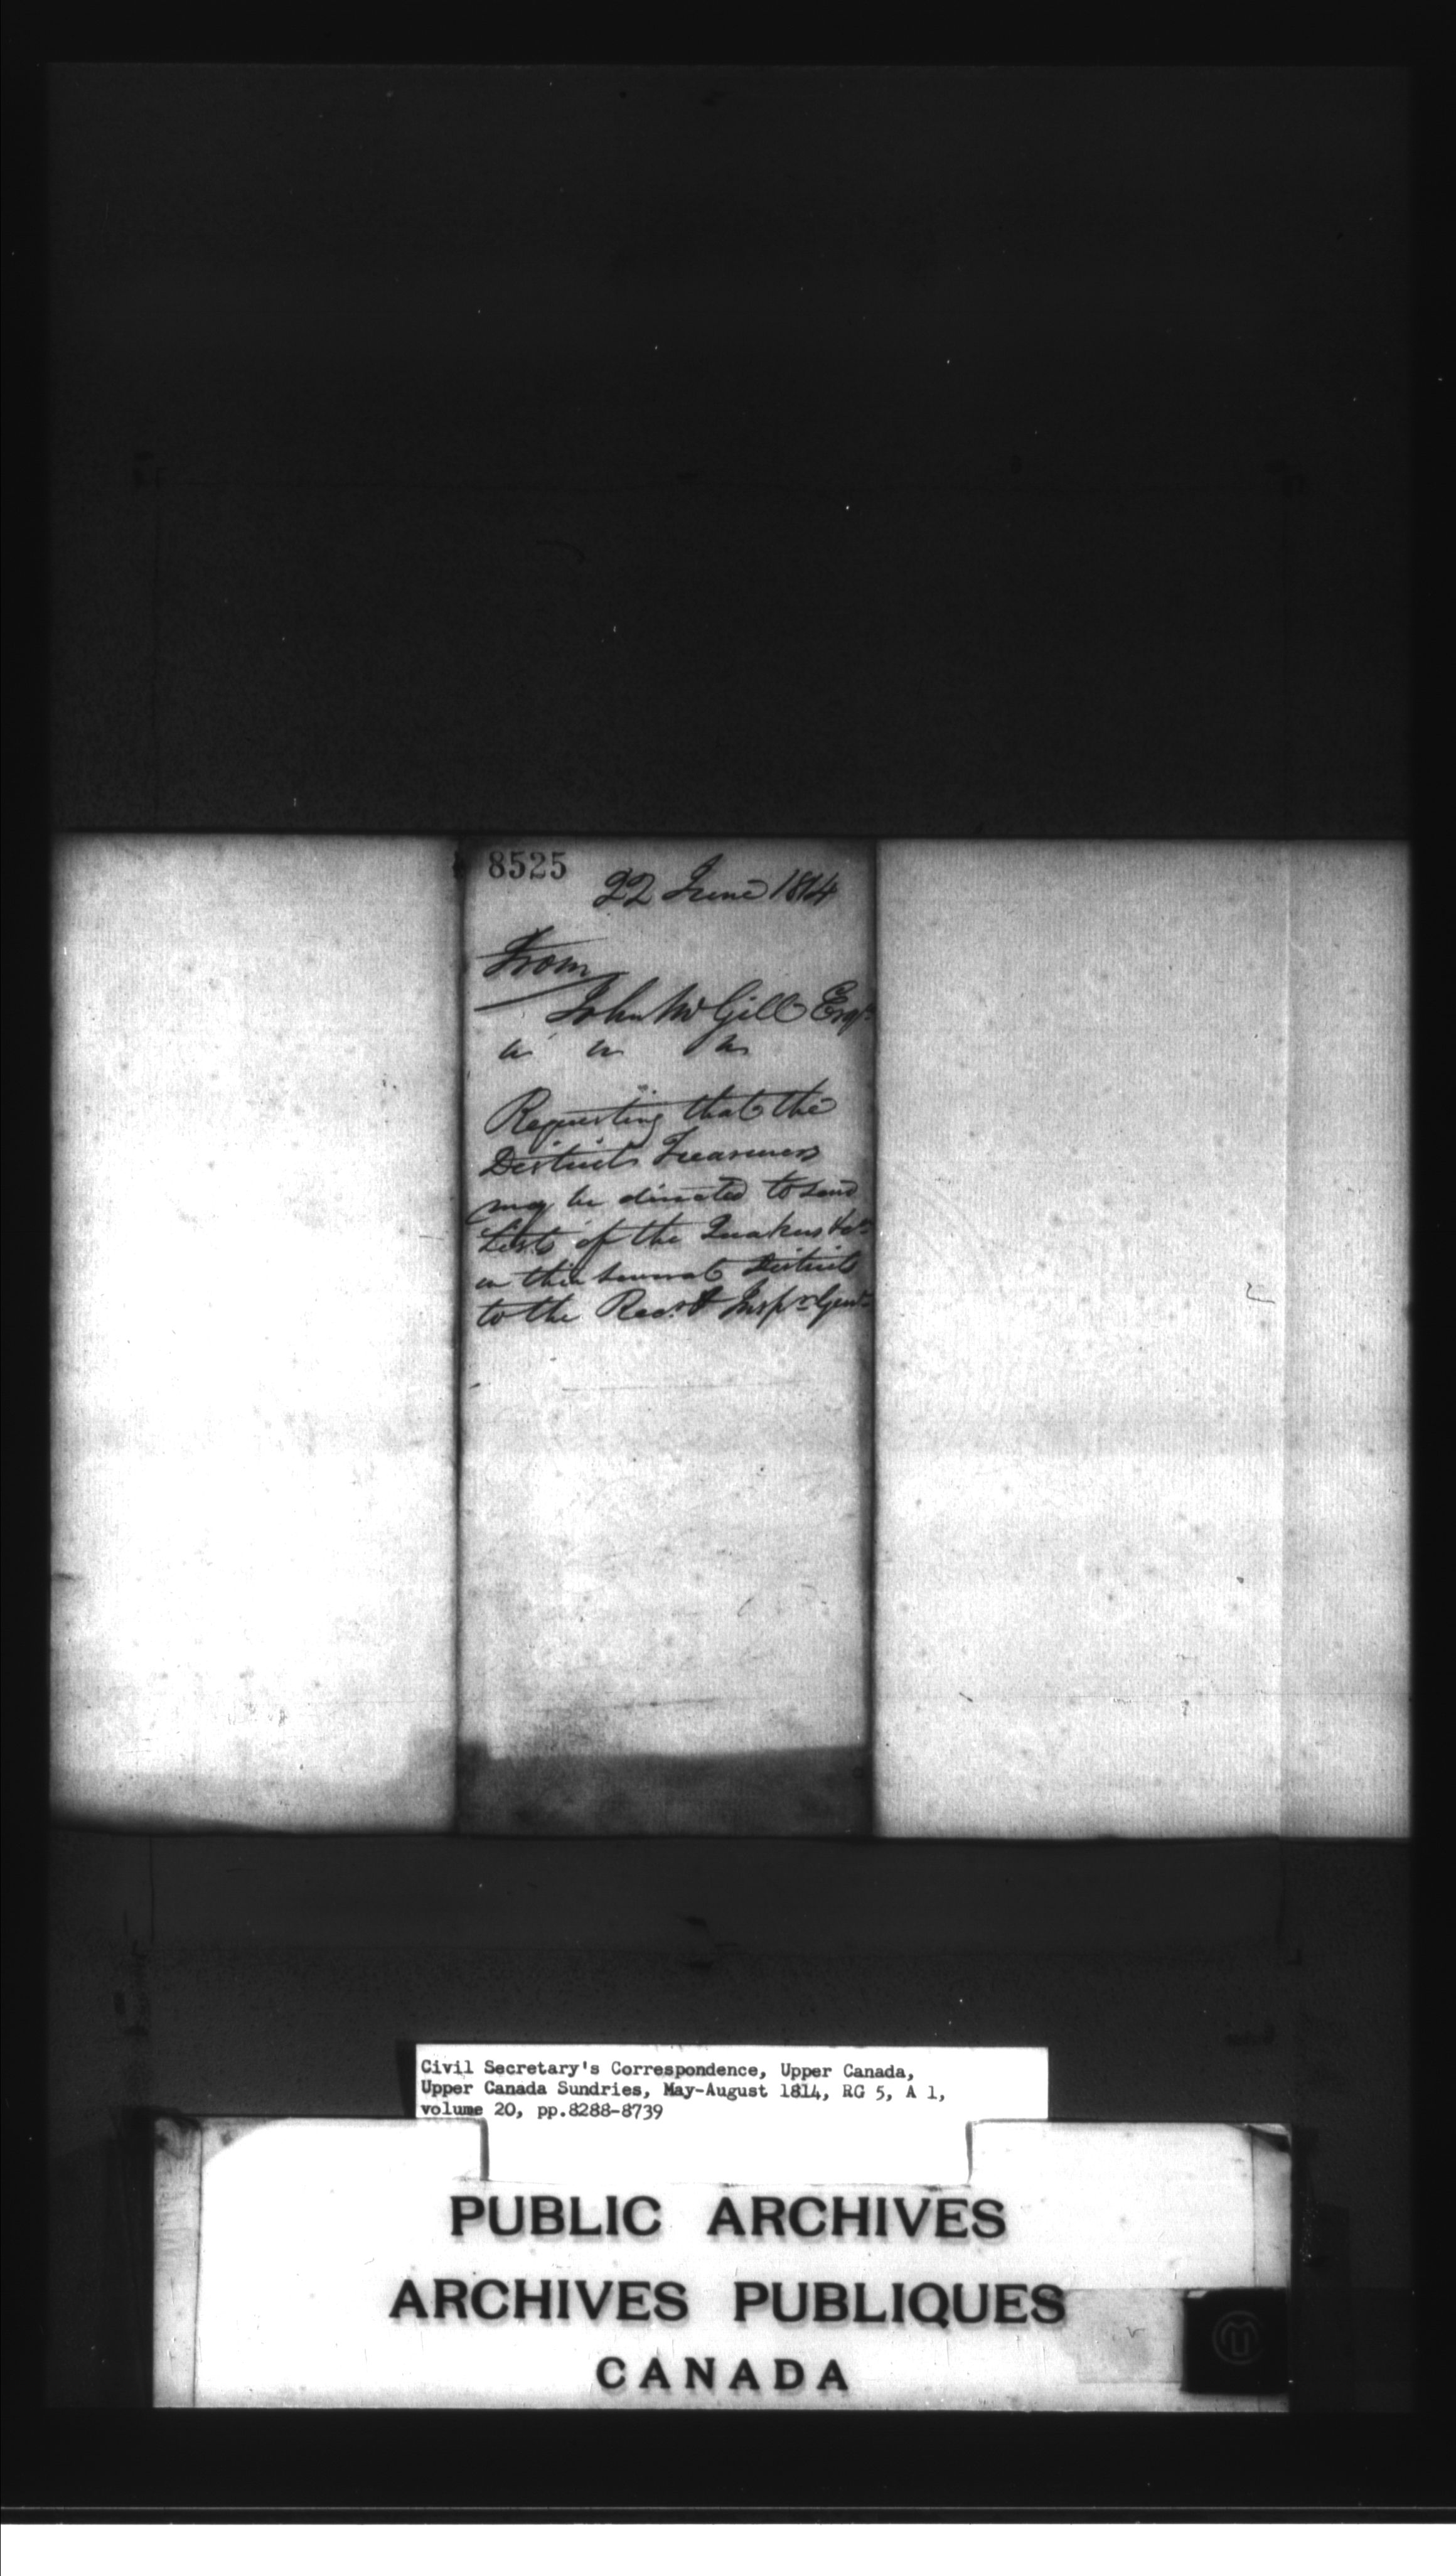 8525
22 June 1814
From
John McGill Esqr.
Requesting that the
District Treasurers
may be directed to send
Lists of the Quakers &c.
in their several Districts
to the Recr. & Inspr. Genl.
Civil Secretary's Correspondence, Upper Canada,
Upper Canada Sundries, May-August 1814, RG 5, A 1,
volume 20, pp.8288-8739
PUBLIC ARCHIVES
ARCHIVES PUBLIQUES
CANADA